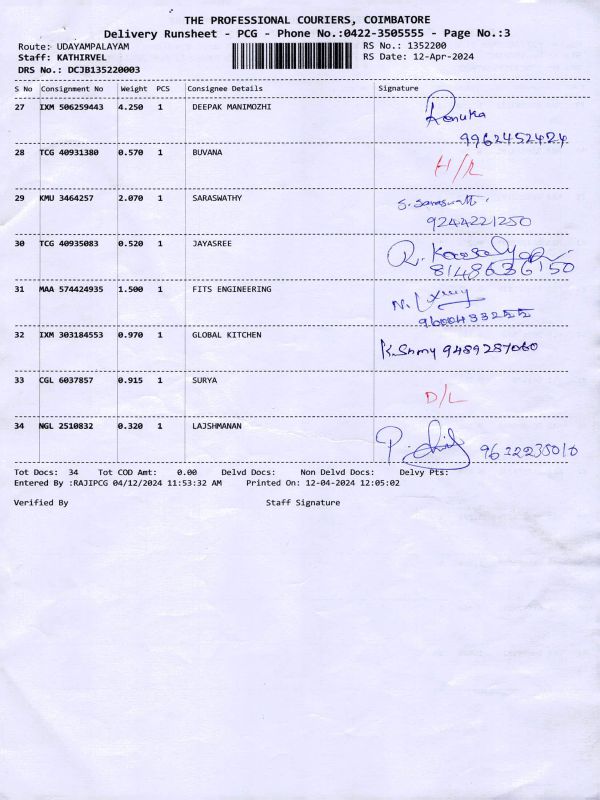 THE PROFESSIONAL COURIERS, COIMBATORE
Delivery Runsheet - PCG - Phone No.:0422-3505555 - Page No.:3
Route: UDAYAMPALAYAM RS No.: 1352200
Staff: KATHIRVEL RS Date: 12-Apr-2024
DRS No.: DCJB135220003
S No Consignment No Weight PCS Consignee Details Signature
27 IXM 506259443 4.250 1 DEEPAK MANIMOZHI Renuka
9962452424
28 TCG 40931380 0.570 1 BUVANA H/L
29 KMU 3464257 2.070 1 SARASWATHY S. Saraswathi
9244221250
30 TCG 40935083 0.520 1 JAYASREE R. Kowsalya
8148636150
31 MAA 574424935 1.500 1 FITS ENGINEERING N.
9600433255
32 IXM 303184553 0.970 1 GLOBAL KITCHEN 9489287060
33 CGL 6037857 0.915 1 SURYA D/L
34 NGL 2510832 0.320 1 LAJSHMANAN P.
Tot Docs: 34 Tot COD Amt: 0.00 Delvd Docs: Non Delvd Docs: Delvy Pts:
Entered By :RAJIPCG 04/12/2024 11:53:32 AM Printed On: 12-04-2024 12:05:02
Verified By Staff Signature